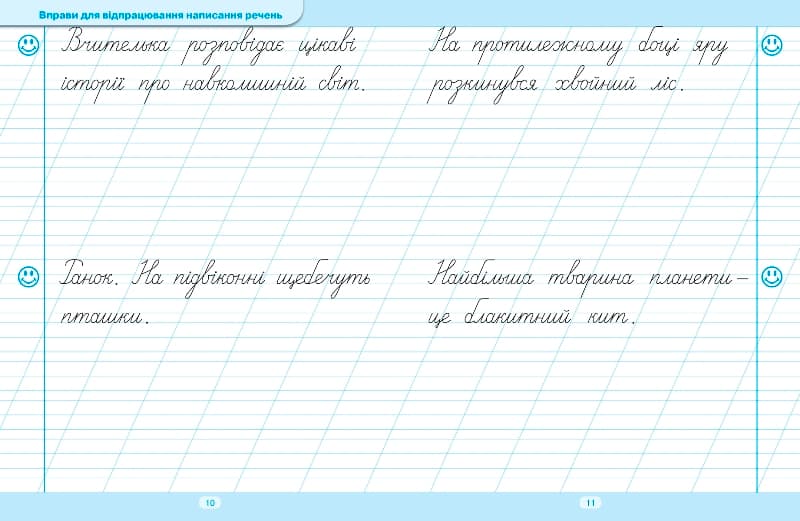 Вправи для відпрацювання написання речень
Вчителька розповідає цікаві
історії про навколишній світ.
Ранок. На підвіконні щебечуть
пташки.
На протилежному боці яру
розкинувся хвойний ліс.
Найбільша тварина планети –
це блакитний кит.
10
11